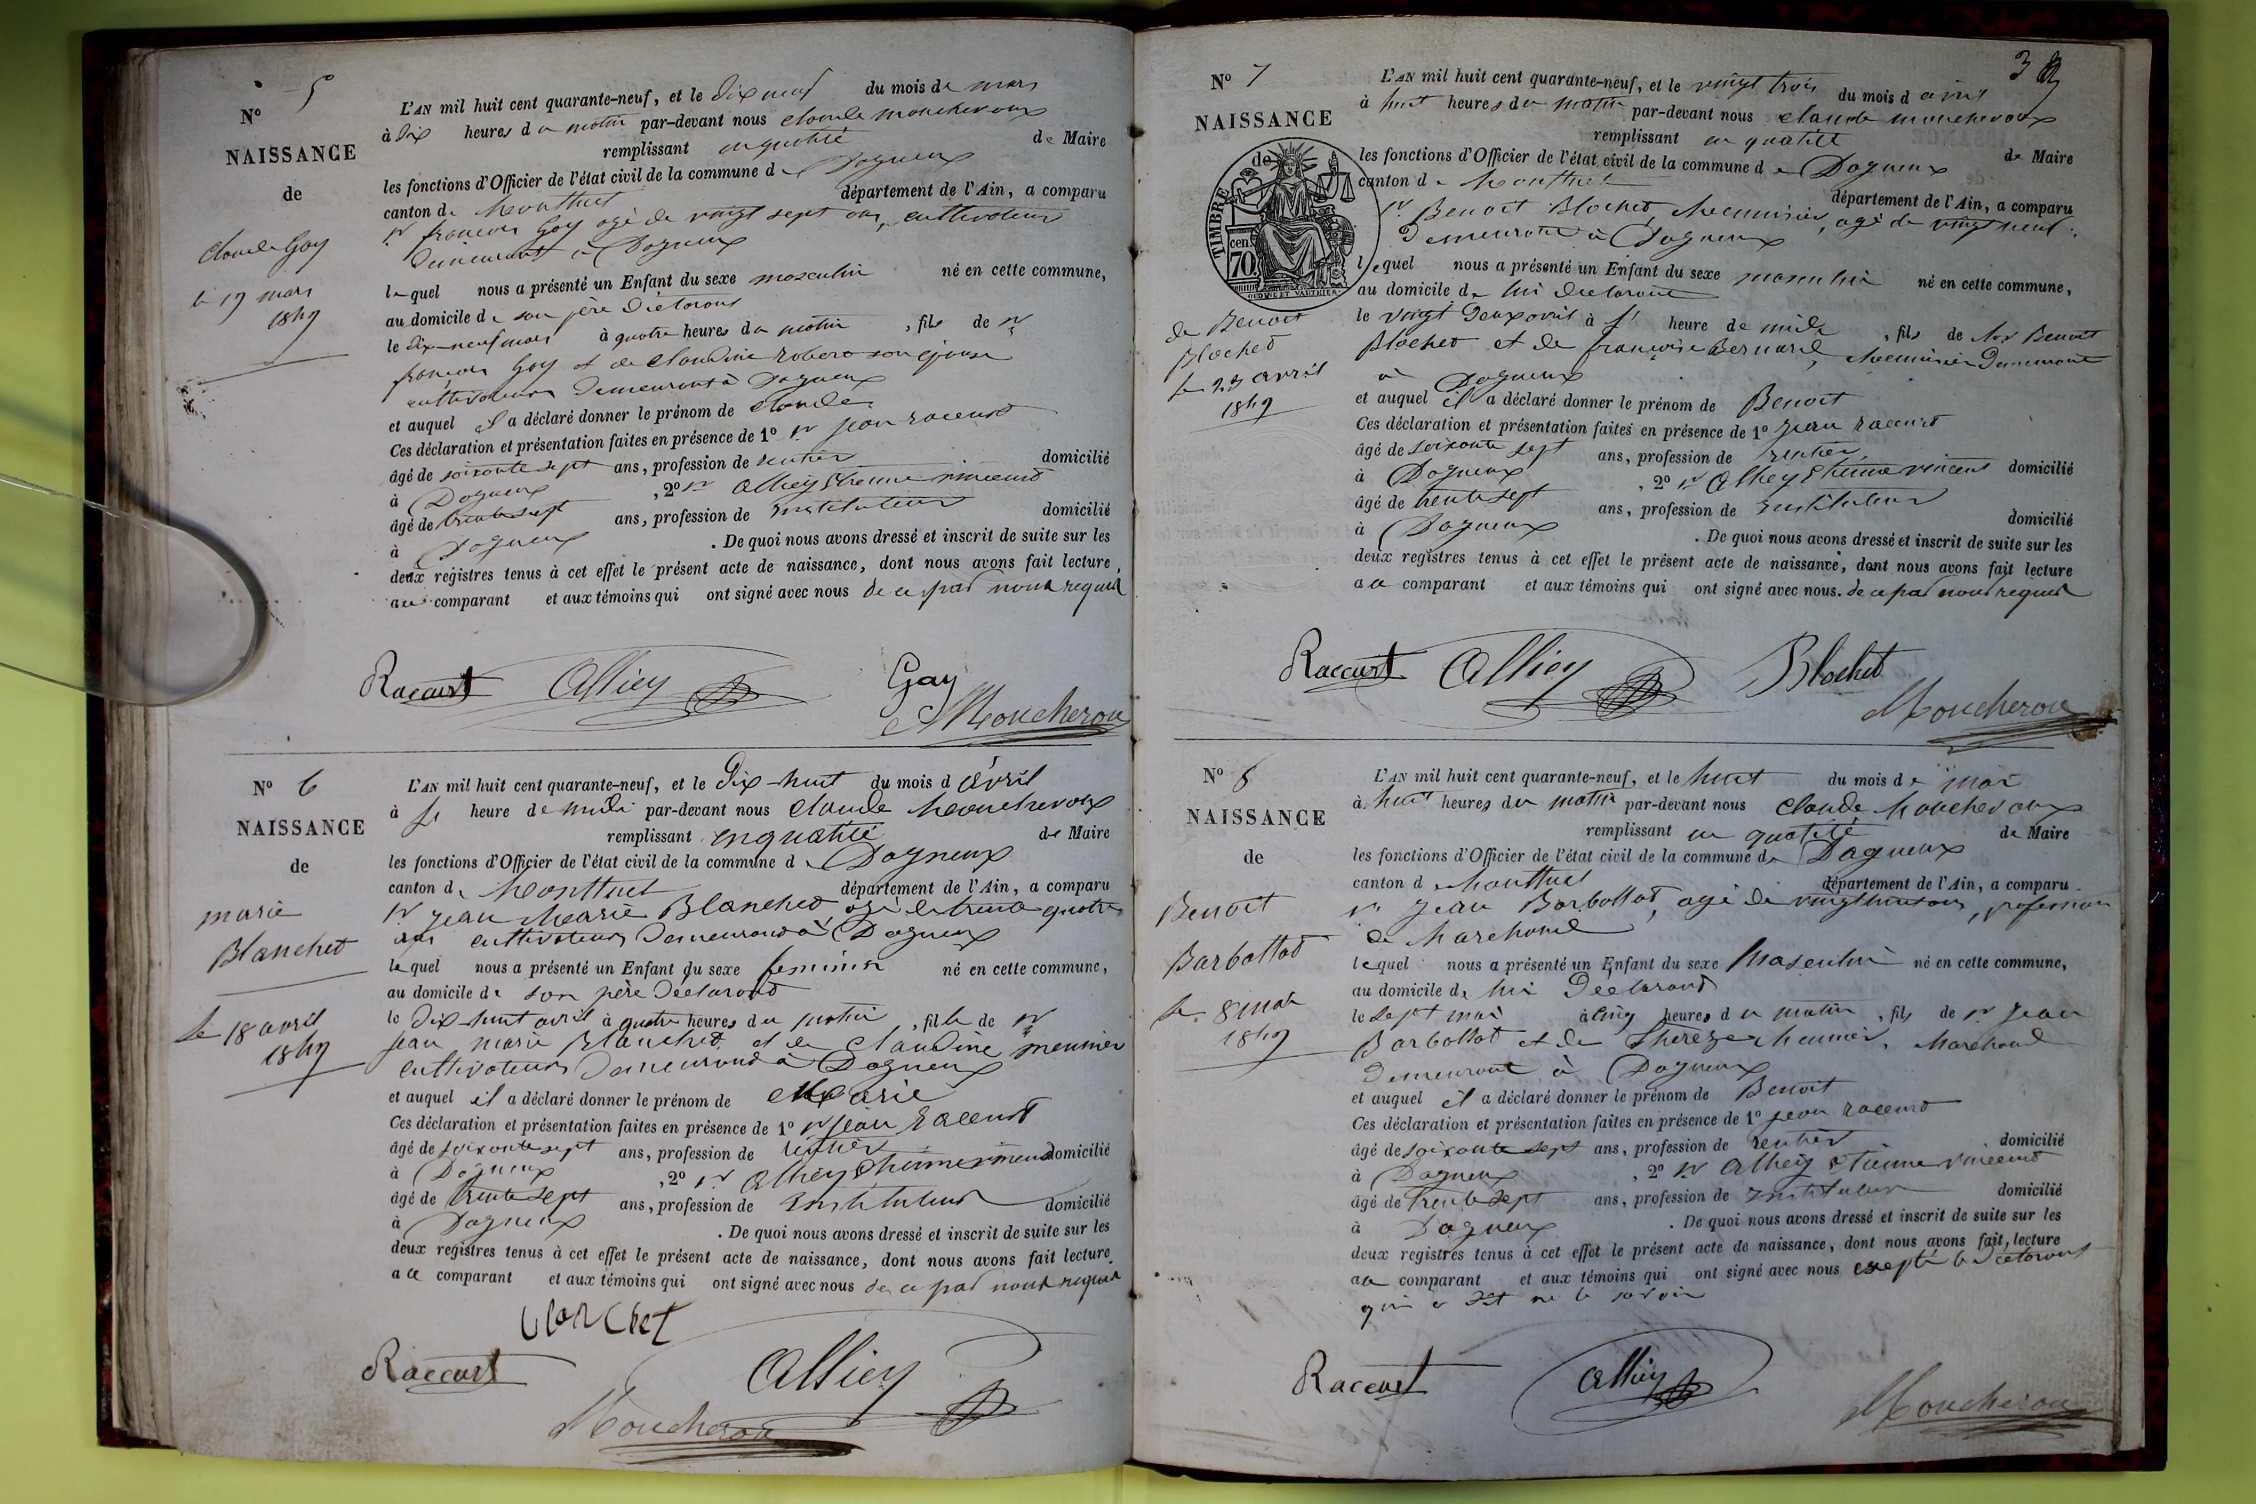 N° 5
NAISSANCE
de
Claude Gay
le 19 mars
1849
L'AN mil huit cent quarante-neuf, et le dix neuf du mois de mars
à dix heures du matin par-devant nous claude moucheroux
remplissant en qualité de Maire
les fonctions d'Officier de l'état civil de la commune de Dagneux
canton de Montluel département de l'Ain, a comparu
sr françois Gay agé de vingt sept ans, cultivateur
demeurant à Dagneux
lequel nous a présenté un Enfant du sexe masculin né en cette commune,
au domicile de son père déclarant
le dix-neuf mars à quatre heures du matin, fils de sr
françois Gay et de claudine robert son épouse
cultivateurs demeurant à Dagneux
et auquel il a déclaré donner le prénom de claude
Ces déclaration et présentation faites en présence de 1° sr jean raccurt
âgé de soixante sept ans, profession de rentier domicilié
à Dagneux, 2° sr Alliey Etienne vincent
âgé de trente sept ans, profession de instituteur domicilié
à Dagneux. De quoi nous avons dressé et inscrit de suite sur les
deux registres tenus à cet effet le présent acte de naissance, dont nous avons fait lecture,
au comparant et aux témoins qui ont signé avec nous de ce par nous requis
Raccurt Alliey Gay
Moucheroux
N° 6
NAISSANCE
de
marie
Blanchet
le 18 avril
1849
L'AN mil huit cent quarante-neuf, et le dix-huit du mois d'avril
à heure de midi par-devant nous claude Moucheroux
remplissant en qualité de Maire
les fonctions d'Officier de l'état civil de la commune de Dagneux
canton de Montluel département de l'Ain, a comparu
sr jean Marie Blanchet agé de trente quatre
ans cultivateur demeurant à Dagneux
lequel nous a présenté un Enfant du sexe feminin né en cette commune,
au domicile de son père déclarant
le dix-huit avril à quatre heures du matin, fille de sr
jean marie Blanchet et de claudine meunier
cultivateurs demeurant à Dagneux
et auquel il a déclaré donner le prénom de Marie
Ces déclaration et présentation faites en présence de 1° sr jean raccurt
âgé de soixante sept ans, profession de rentier domicilié
à Dagneux, 2° sr Alliey Etienne vincent
âgé de trente sept ans, profession de instituteur domicilié
à Dagneux. De quoi nous avons dressé et inscrit de suite sur les
deux registres tenus à cet effet le présent acte de naissance, dont nous avons fait lecture
au comparant et aux témoins qui ont signé avec nous de ce par nous requis
blanchet
Raccurt Alliey
Moucheroux
3
N° 7
NAISSANCE
de
TIMBRE
70 cen.
de Benoit
Blochet
le 23 avril
1849
L'AN mil huit cent quarante-neuf, et le vingt trois du mois d'avril
à huit heures du matin par-devant nous claude moucheroux
remplissant en qualité de Maire
les fonctions d'Officier de l'état civil de la commune de Dagneux
canton de Montluel département de l'Ain, a comparu
sr Benoit Blochet, Menuisier, agé de vingt neuf
demeurant à Dagneux
lequel nous a présenté un Enfant du sexe masculin né en cette commune,
au domicile de lui déclarant
le vingt deux avril à heure de midi, fils de sr Benoit
Blochet et de françoise Bernard, Menuisier demeurant
à Dagneux
et auquel il a déclaré donner le prénom de Benoit
Ces déclaration et présentation faites en présence de 1° jean raccurt
âgé de soixante sept ans, profession de rentier domicilié
à Dagneux, 2° sr Alliey Etienne vincent
âgé de trente sept ans, profession de instituteur domicilié
à Dagneux. De quoi nous avons dressé et inscrit de suite sur les
deux registres tenus à cet effet le présent acte de naissance, dont nous avons fait lecture
au comparant et aux témoins qui ont signé avec nous. de ce par nous requis
Raccurt Alliey Blochet
Moucheroux
N° 8
NAISSANCE
de
Benoit
Barbollat
le 8 mai
1849
L'AN mil huit cent quarante-neuf, et le huit du mois de mai
à huit heures du matin par-devant nous claude Moucheroux
remplissant en qualité de Maire
les fonctions d'Officier de l'état civil de la commune de Dagneux
canton de Montluel département de l'Ain, a comparu
sr jean Barbollat, agé de vingt huit ans, profession
de Marchand
lequel nous a présenté un Enfant du sexe Masculin né en cette commune,
au domicile de lui déclarant
le sept mai à cinq heures du matin, fils de sr jean
Barbollat et de Thérèze Meunier, Marchand
demeurant à Dagneux
et auquel il a déclaré donner le prénom de Benoit
Ces déclaration et présentation faites en présence de 1° jean raccurt
âgé de soixante sept ans, profession de rentier domicilié
à Dagneux, 2° sr Alliey Etienne vincent
âgé de trente sept ans, profession de instituteur domicilié
à Dagneux. De quoi nous avons dressé et inscrit de suite sur les
deux registres tenus à cet effet le présent acte de naissance, dont nous avons fait lecture
au comparant et aux témoins qui ont signé avec nous excepté le déclarant
qui a dit ne le savoir
Raccurt Alliey
Moucheroux